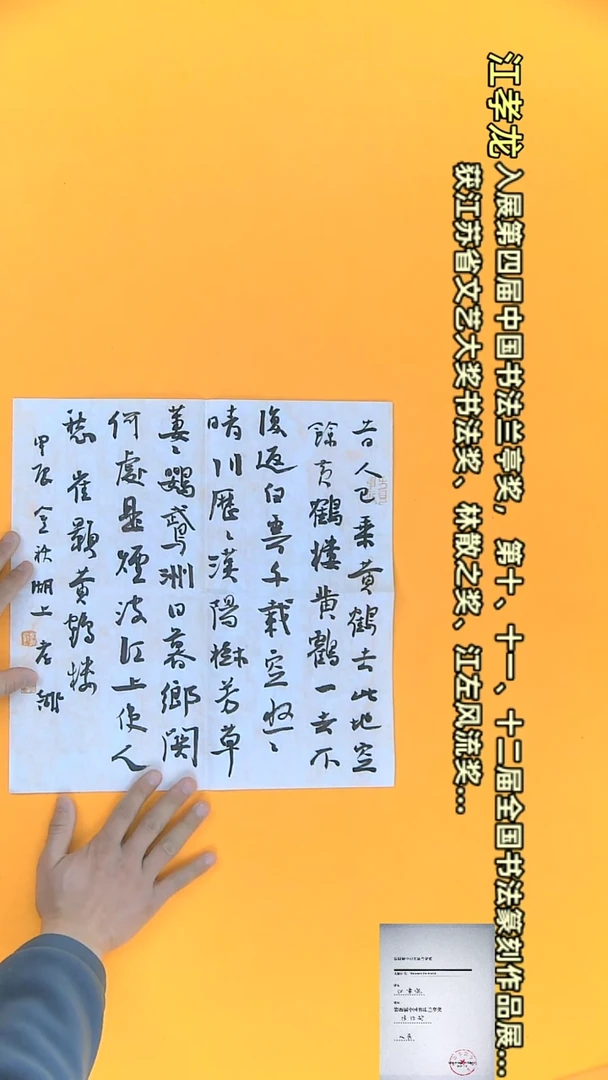 江孝龙 入展第四届中国书法兰亭奖，第十、十一、十二届全国书法篆刻作品展...
获江苏省文艺大奖书法奖、林散之奖、江左风流奖...
昔人已乘黄鶴去此地空
餘黄鶴樓黄鶴一去不
復返白雲千載空悠〻
晴川歷〻漢陽樹芳草
萋〻鸚鵡洲日暮鄉関
何處是煙波江上使人
愁 崔顥黄鶴樓
甲辰 秋 湖上 孝龍